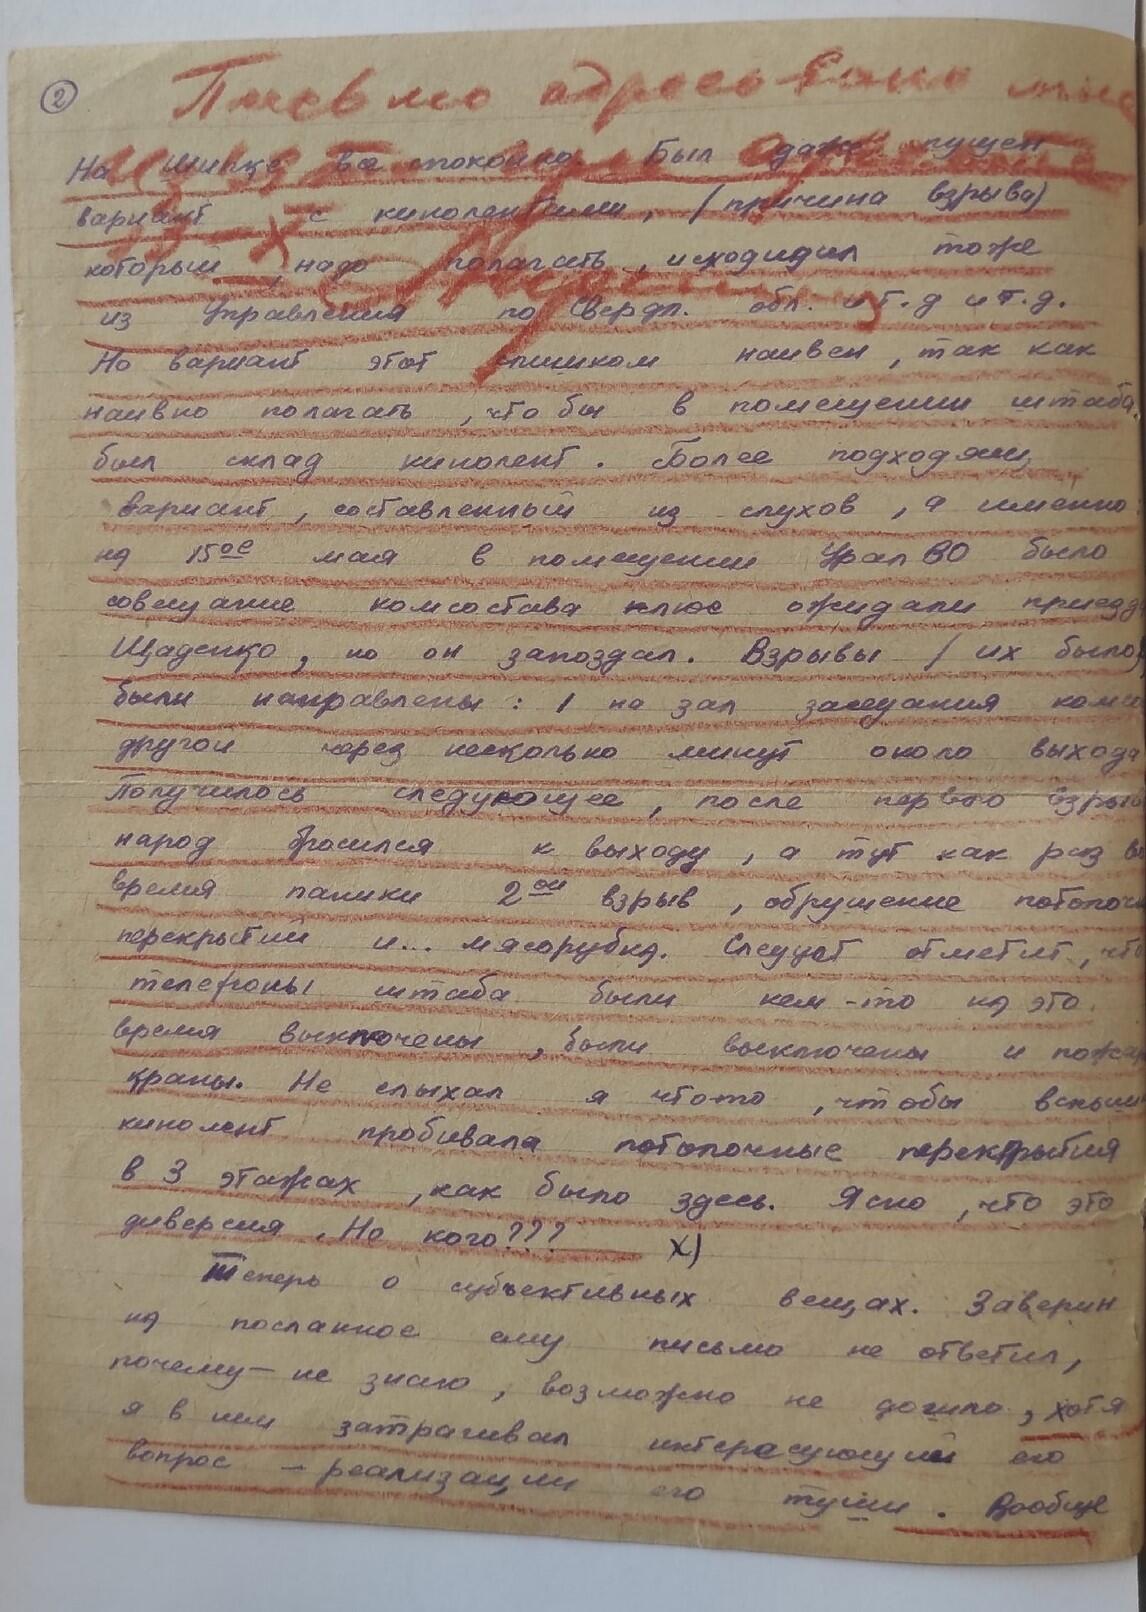 ②
Письмо адресовано мне
На Шипке все спокойно. Был даже пущен
вариант с кинолентами, (причина взрыва)
который, надо полагать, исходидил тоже
из Управления по Свердл. обл. и т.д и т.д.
Но вариант этот слишком наивен, так как
наивно полагать, что бы в помещении штаба
был склад кинолент. Более подходящ
вариант, составленный из слухов, а именно
на 15ое мая в помещении УралВО было
совещание комсостава плюс ожидали приезд
Щаденко, но он запоздал. Взрывы (их было
были направлены: 1 на зал заседания ком
другой через несколько минут около выхода
Получилось следующее, после первого взры
народ бросился к выходу, а тут как раз во
время паники 2ой взрыв, обрушение потолочн
перекрытий и... мясорубка. Следует отметит, что
телефоны штаба были кем-то на это
время выключены, были выключены и пожар
краны. Не слыхал я что-то, чтобы вспыш
кинолент пробивала потолочные перекрытия
в 3 этажах, как было здесь. Ясно, что это
диверсия. Но кого??? х)
Теперь о субъективных вещах. Заверин
на посланное ему письмо не ответил,
почему – не знаю, возможно не дошло, хотя
я в нем затрагивал интересующий его
вопрос – реализации его туши. Вообще